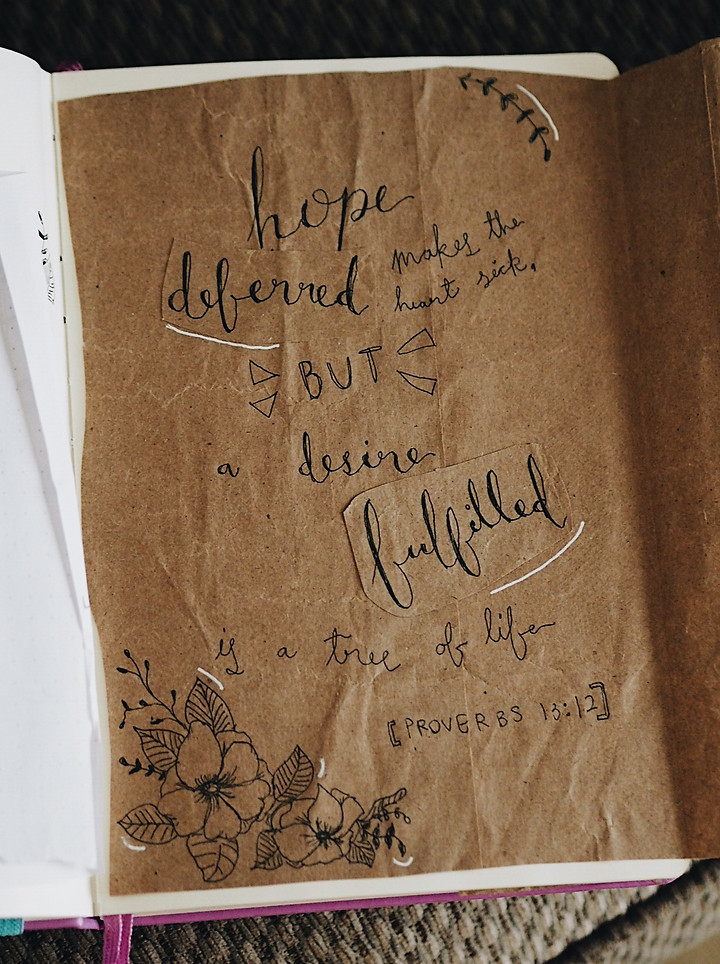 hope
deferred makes the
heart sick,
BUT
a desire
fulfilled
is a tree of life
[PROVERBS 13:12]